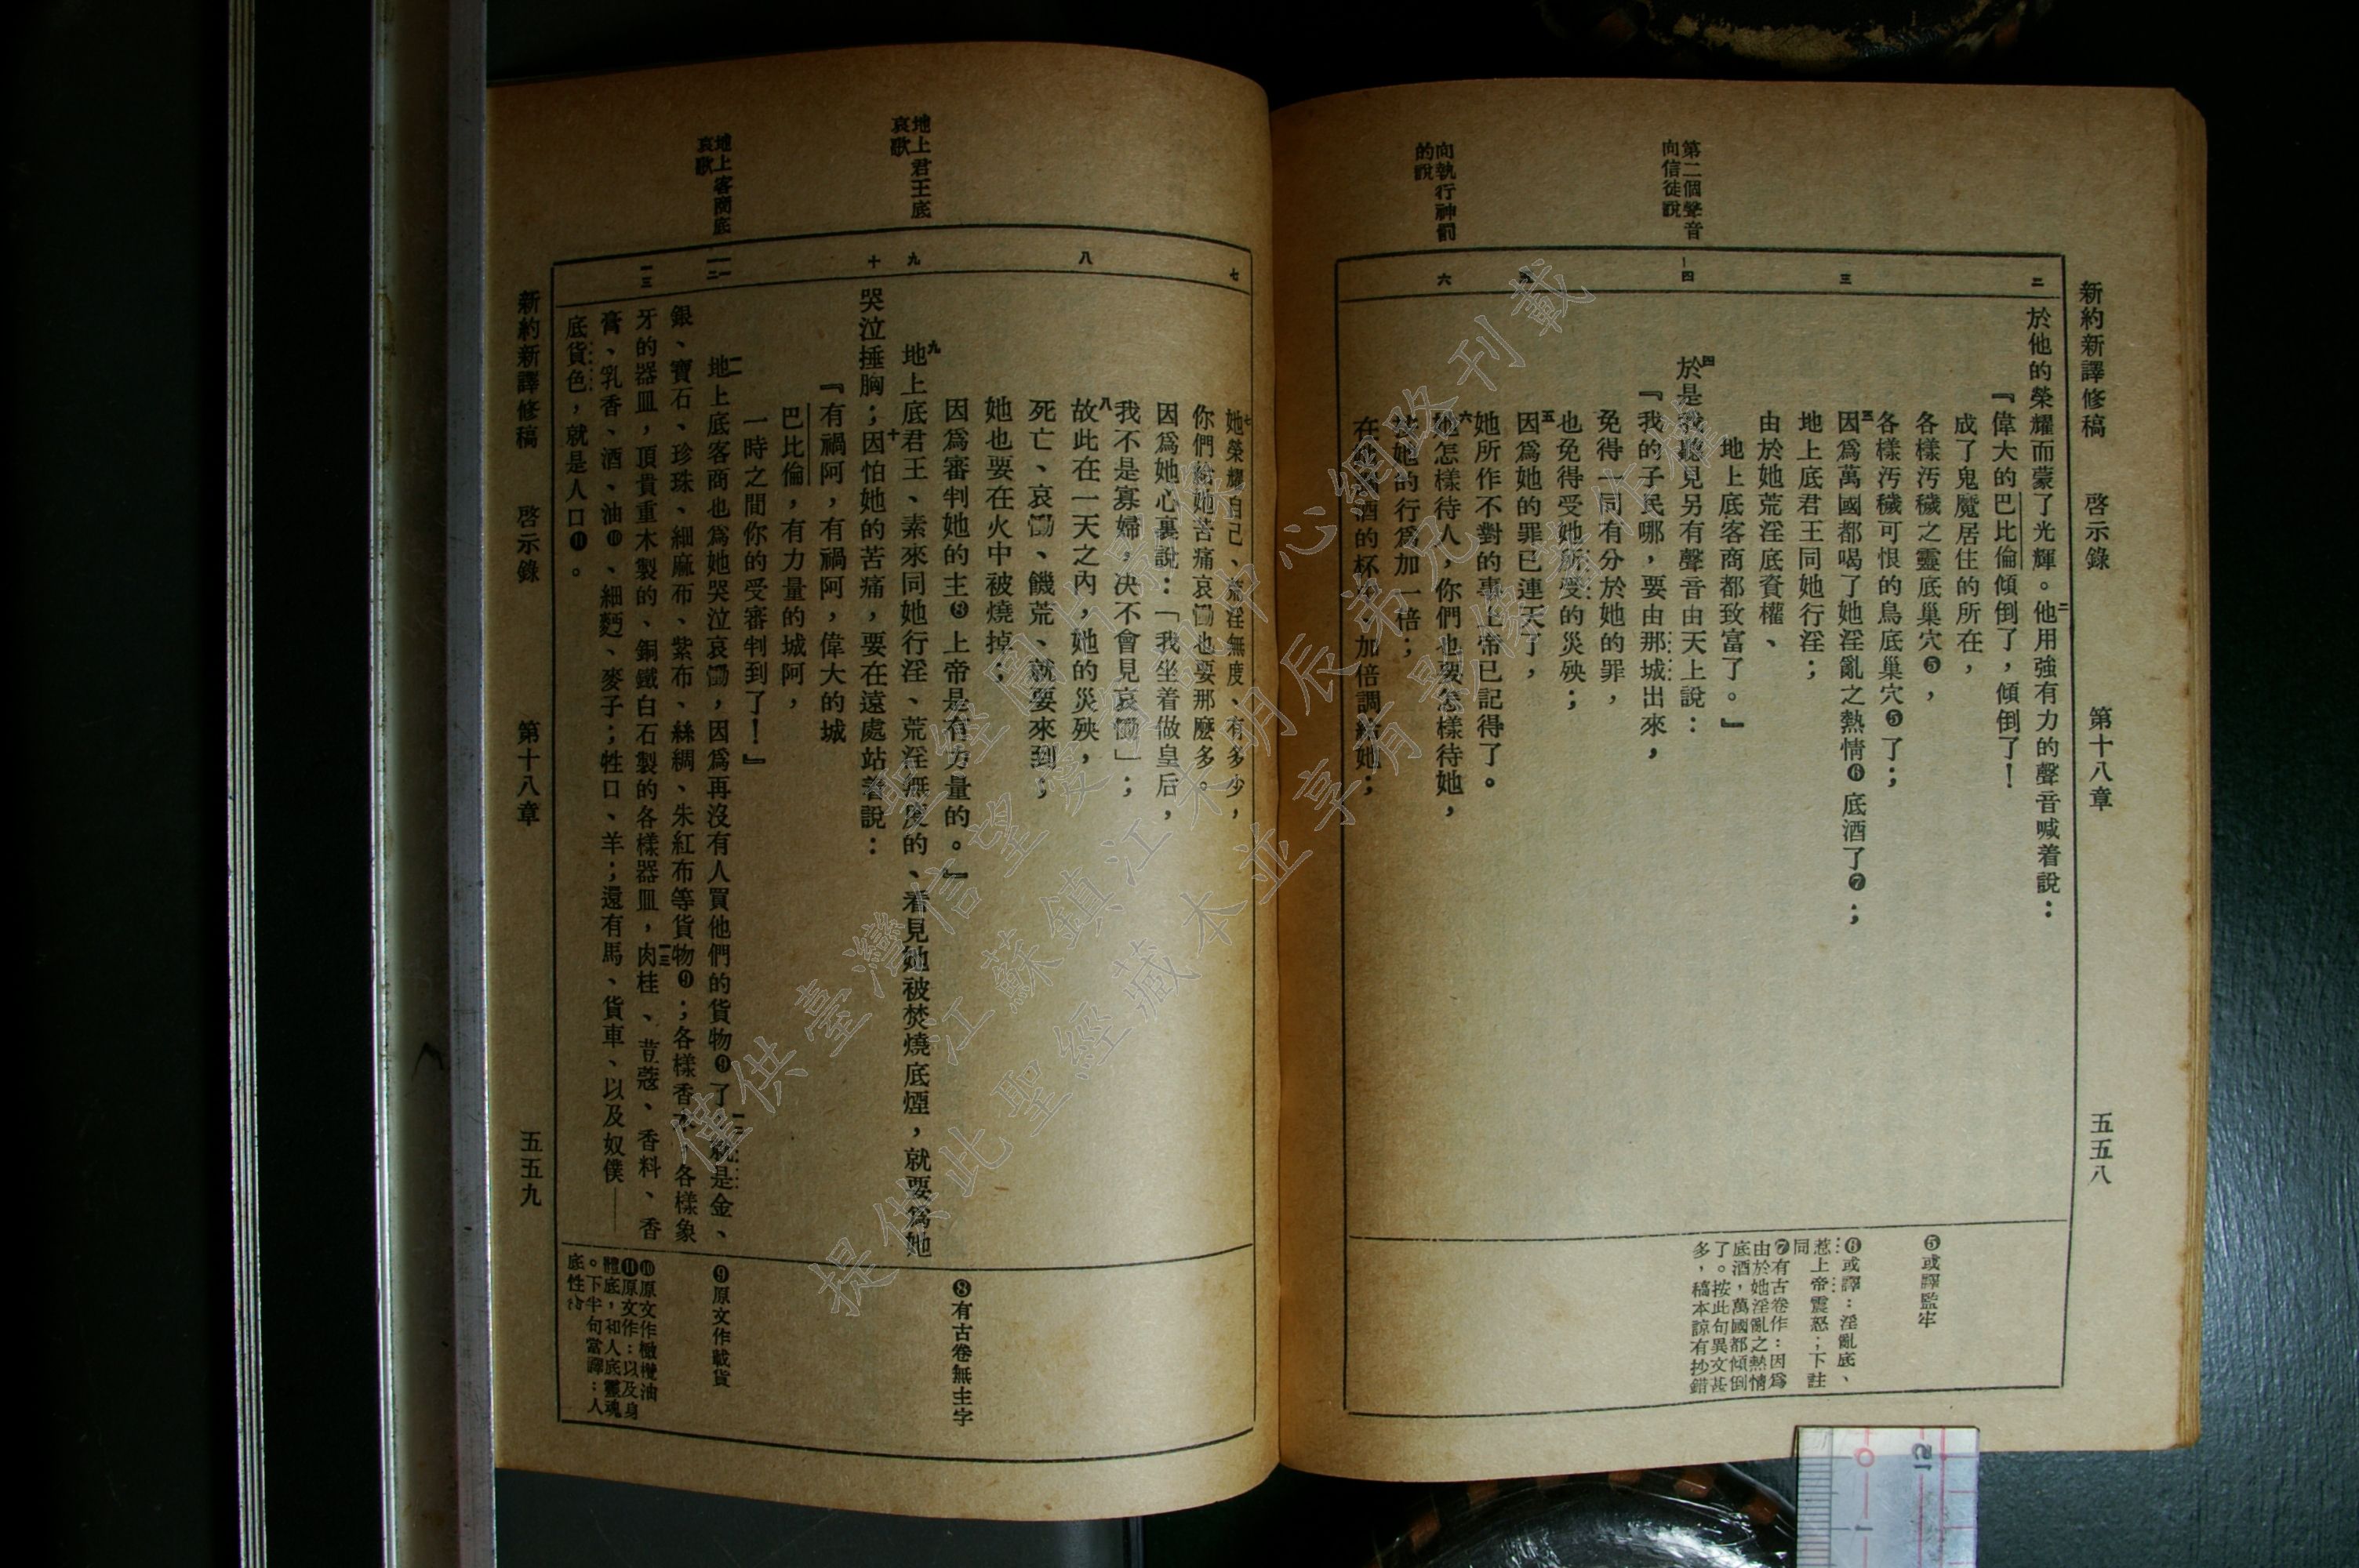 新約新譯修稿　啓示錄　第十八章　五五八
第二個聲音
向信徒說
向執行神罰
的說
二
三
四
五
六
於他的榮耀而蒙了光輝。二他用強有力的聲音喊着說：
『偉大的巴比倫傾倒了，傾倒了！
成了鬼魔居住的所在，
各樣汚穢之靈底巢穴❺，
各樣汚穢可恨的鳥底巢穴❺了；
三因爲萬國都喝了她淫亂之熱情❻底酒了❼；
地上底君王同她行淫；
由於她荒淫底資權、
地上底客商都致富了。』
四於是我聽見另有聲音由天上說：
『我的子民哪，要由那城出來，
免得一同有分於她的罪，
也免得受她所受的災殃；
五因爲她的罪已連天了，
她所作不對的事上帝已記得了。
六她怎樣待人，你們也要怎樣待她，
按她的行爲加一倍；
在她調酒的杯中、加倍調給她；
❺或譯監牢
❻或譯：淫亂底、
惹上帝震怒；下註
同
❼有古卷作：因爲
由於她淫亂之熱情
底酒，萬國都傾倒
了。按此句異文甚
多，稿本諒有抄錯
地上君王底
哀歌
地上客商底
哀歌
七
八
九
十
一一
一二
一三
七她榮耀自己、荒淫無度、有多少，
你們給她苦痛哀慟也要那麼多。
因爲她心裏說：「我坐着做皇后，
我不是寡婦，決不會見哀慟」；
八故此在一天之內，她的災殃，
死亡、哀慟、饑荒、就要來到；
她也要在火中被燒掉；
因爲審判她的主❽上帝是有力量的。』
九地上底君王、素來同她行淫、荒淫無度的、看見她被焚燒底煙，就要爲她
哭泣捶胸；十因怕她的苦痛，要在遠處站着說：
『有禍阿，有禍阿，偉大的城
巴比倫，有力量的城阿，
一時之間你的受審判到了！』
一一地上底客商也爲她哭泣哀慟，因爲再沒有人買他們的貨物❾了一二就是金、
銀、寶石、珍珠、細麻布、紫布、絲綢、朱紅布等貨物❾；各樣香木、各樣象
牙的器皿，頂貴重木製的、銅鐵白石製的各樣器皿，一三肉桂、荳蔻、香料、香
膏、乳香、酒、油❿、細麪、麥子；牲口、羊；還有馬、貨車、以及奴僕——
底貨色，就是人口⓫。
❽有古卷無主字
❾原文作載貨
❿原文作橄欖油
⓫原文作：以及身
體底，和人底靈魂
。下半句當譯：人
底性命
新約新譯修稿　啓示錄　第十八章　五五九
僅供臺灣信望愛
網路刊載
江蘇鎮江
提供此聖經藏本並享有影像著作權
0
15
1